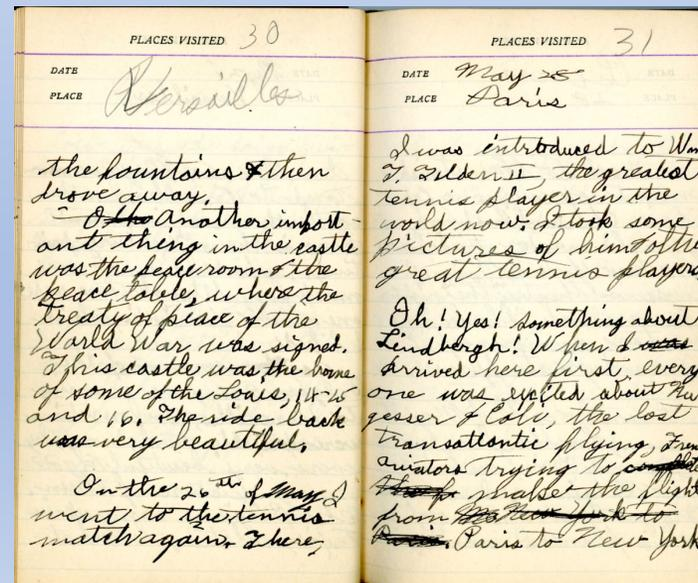 PLACES VISITED 30
DATE
PLACE Versailles
the fountains & then
drove away.
Another import-
ant thing in the castle
was the peace room & the
peace table, where the
treaty of peace of the
World War was signed.
This castle was the home
of some of the Louis, 14-15
and 16. The ride back
was very beautiful.
On the 26th of May I
went to the tennis
match again. There,
PLACES VISITED 31
DATE May 28
PLACE Paris
I was introduced to Wm
T. Tilden II, the greatest
tennis player in the
world now. I took some
pictures of him & other
great tennis players
Oh! Yes! something about
Lindbergh! When I was
arrived here first, every
one was excited about Nun
gesser & Coli, the lost
transatlantic flying,
aviators trying to
make the flight
from New York to
Paris. Paris to New York